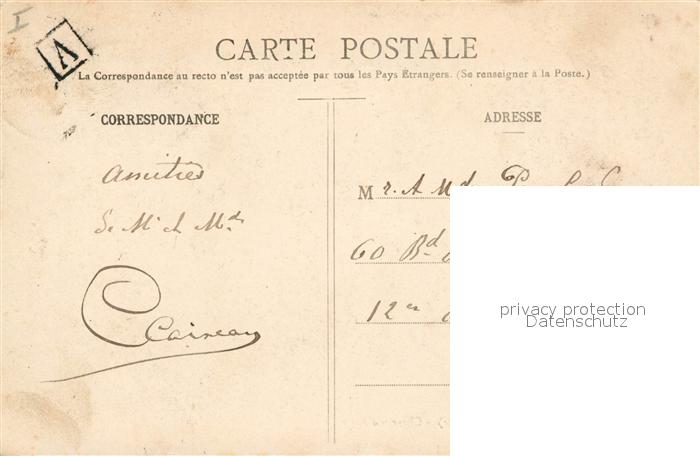 I
A
CARTE POSTALE
La Correspondance au recto n'est pas acceptée par tous les Pays Étrangers. (Se renseigner à la Poste.)
CORRESPONDANCE
Amitiés
de Mr et Md
ADRESSE
Mr. A Md
60 Bd
12er
privacy protection
Datenschutz